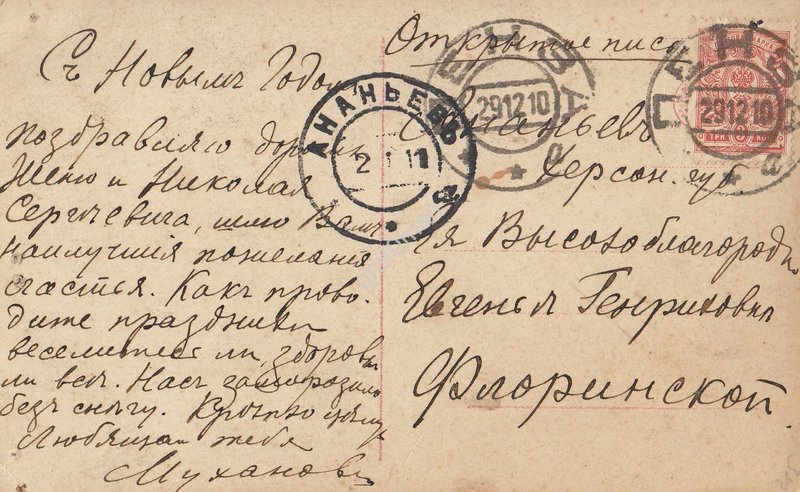 Съ Новымъ Годомъ
поздравляю дорогихъ
Женю и Николая
Сергѣевича, шлю Вамъ
наилучшiя пожеланiя
счастья. Какъ прово-
дите праздники
веселитесь ли, здоровы
ли всѣ. Насъ заморозило
безъ снѣгу. Крѣпко цѣлую
Любящая тебя
Муханова
Открытое письмо
Ананьевъ
Херсон. губ
Ея Высокоблагородiю
Евгенiи Генриховнѣ
Флоринской
АНАНЬЕВЪ
2 1 11
ПЕНЗА
29 12 10
а
ПЕНЗА
29 12 10
а
ТРИ 3 КОП